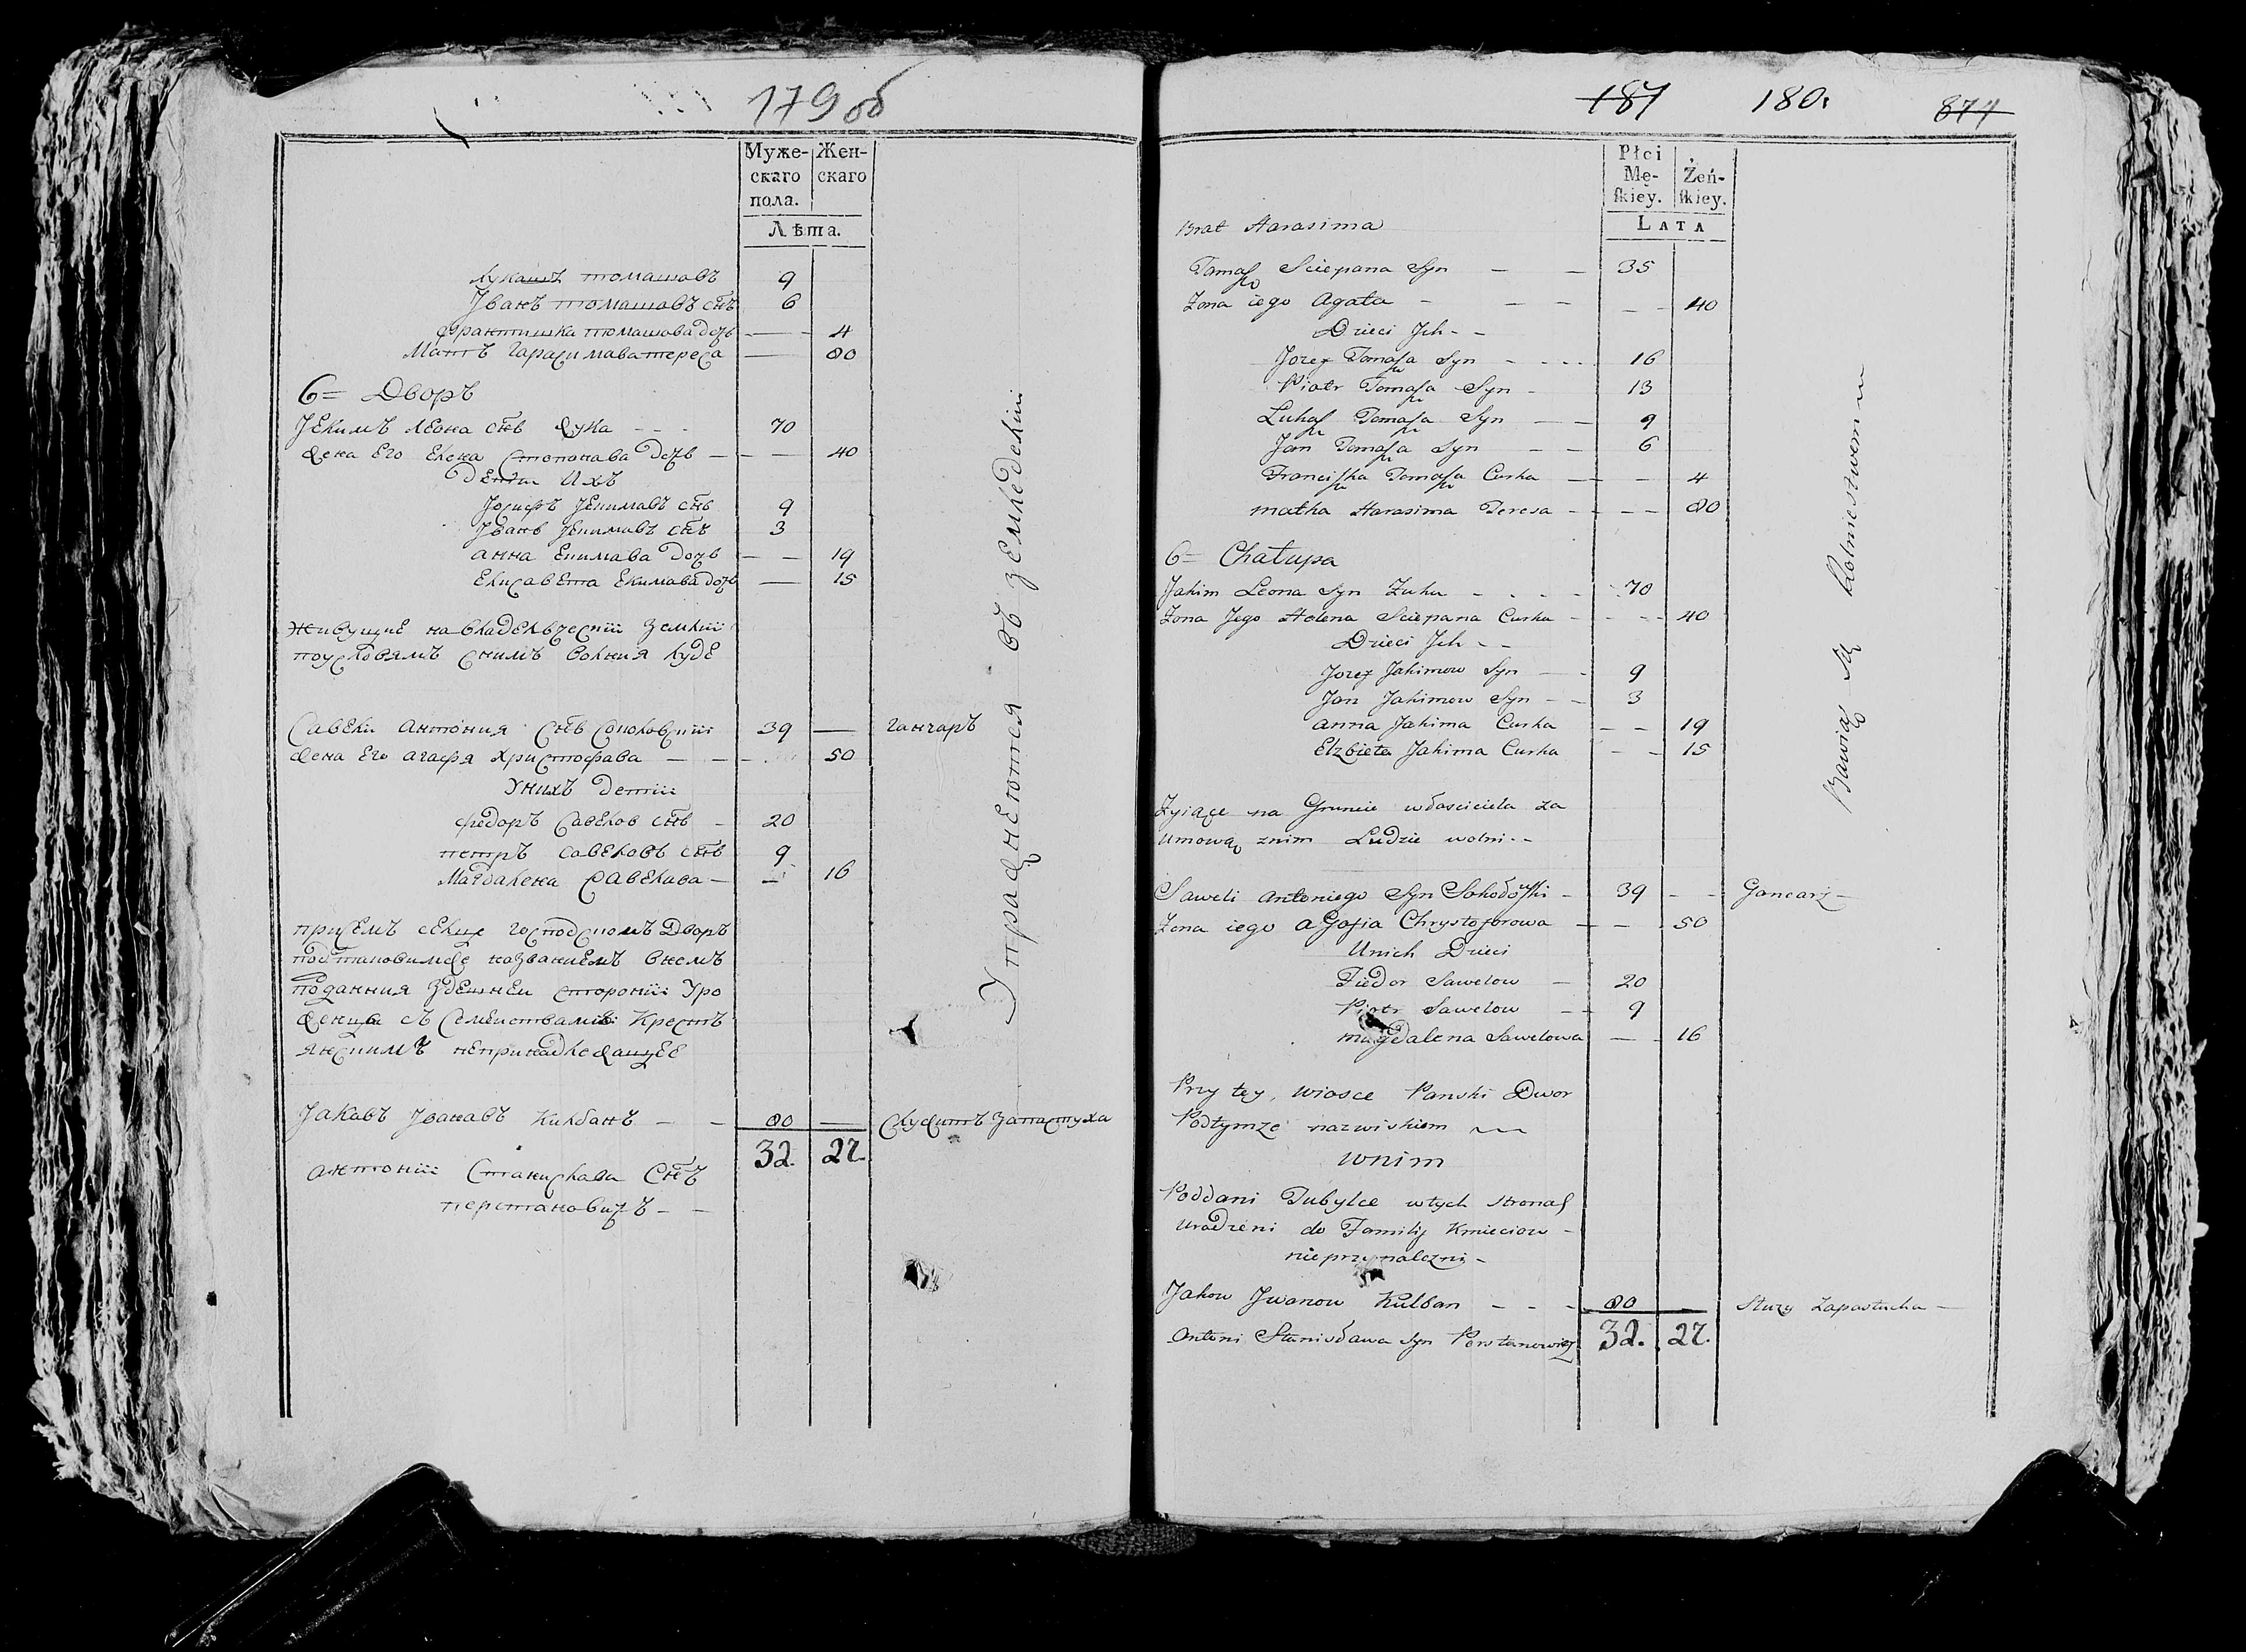 179 об
Муже-
скаго
пола.
Жен-
скаго
Лѣта.
Лукашъ томашовъ 9
Јванъ томашовъ сн̃ъ 6
Франтишка томашова дочь — 4
Матъ Гарасимава тереса — 80
6= Дворъ
Јекимъ леона сн̃ъ Жука - - - 70
Жена Его Елена степонава дочь — — 40
Дети Ихъ
Јосифъ Јекимавъ сн̃ъ 9
Јванъ Јекимавъ сн̃ъ 3
анна Екимава дочь — — 19
Елисавета Екимава дочь — 15
Живущие на владелъческий Землий
поусловямъ снимъ волния люде
Савели антония сн̃ъ Соколовский 39 — ганчаръ
Жена Его агафя христофава — — 50
Унихъ детий
федоръ Савелов сн̃ъ - 20
петръ савеловъ сн̃ъ 9
Магдалена Савелава — — 16
присемъ селце господскомъ Дворъ
подтановимже названиемъ внемъ
поданния здешнеи стороний Уро
женци съ Семействамъ Крестъ
янскимъ непринадлежащее
Јаковъ Јвановъ Кулбанъ — — 80 — служитъ запастуха
32. 27.
антоний Станислава Сн̃ъ
перстановичъ - -
Упражнеются въ земледелии
187 180. 871
Płci
Mę-
ſkiey.
Żeń-
ſkiey.
LATA
Brat Harasima
Tamaſz Sciepana Syn — — 35
Zona iego Agata - — — - — - 40
Dzieci Jch - -
Jozef Tomaſza Syn - - - - 16
Piotr Tomaſza Syn - 13
Lukaſz Tomaſza Syn — — 9
Jan Tomaſza Syn — — 6
Franciſzka Tomaſza Curka — — 4
matka Harasima Teresa - - — — 80
6= Chałupa
Jakim Leona Syn Zuku - - - - 70
Zona Jego Helena Sciepana Curka - - - - 40
Dzieci Jch - -
Jozef Jakimow Syn — - 9
Jan Jakimow Syn - - 3
anna Jakima Curka - — 19
Elzbieta Jakima Curka - - 15
Zyiące na Gruncie własciciela za
umową znim Ludzie wolni - -
Saweli antoniego Syn Sokołoſſki - 39 - - Gancarz —
Zona iego aGafia Chrystoforowa — — - 50
Unich Dzieci
Fiedor Sawelow — 20
Piotr Sawelow — - 9
magdalena Sawelowa — - 16
Przy tey, wiosce Panski Dwor
Podtymze nazwiskiem
wnim
Poddani Tubylce wtych stronaſ
uradzeni do Familij Kmieciow -
nieprzynalezni -
Jakow Jwanow Kulban - - - 80 — Służy Zapastucha —
32. 27.
antoni Stanisława syn Perstanowicz
Bawią Są Rolniestwem